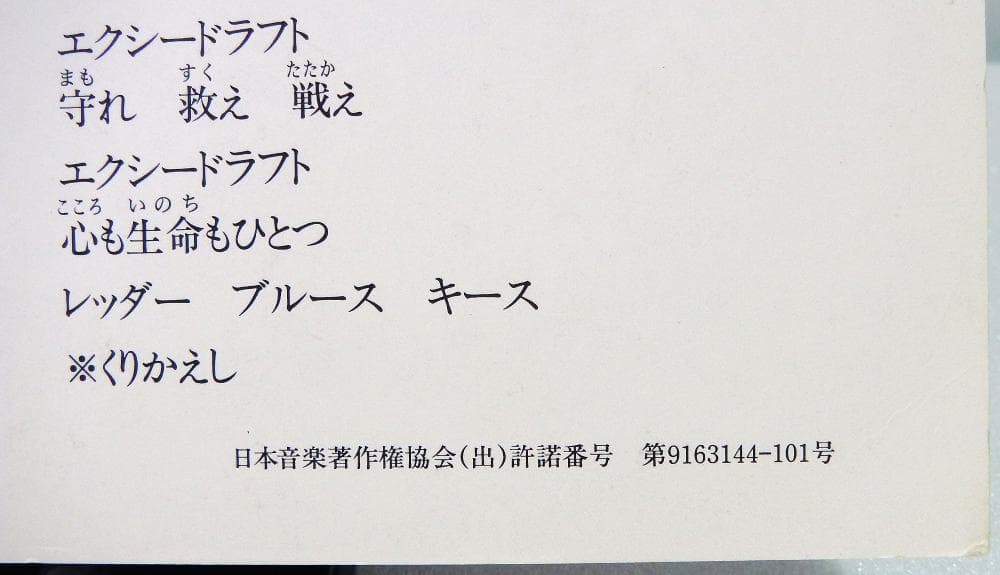 エクシードラフト
まも すく たたか
守れ　救え　戦え
エクシードラフト
こころ いのち
心も生命もひとつ
レッダー　ブルース　キース
※くりかえし
日本音楽著作権協会(出)許諾番号　第9163144-101号